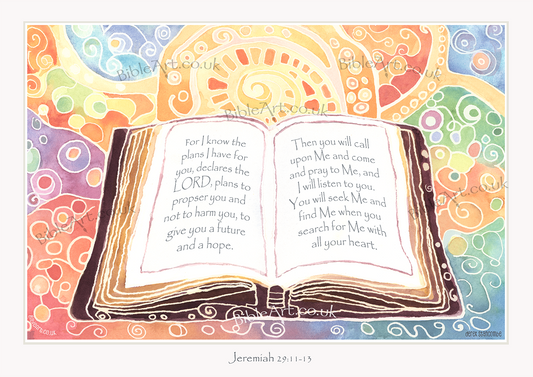 BibleArt.co.uk
BibleArt.co.uk
BibleArt.co.uk
For I know the
plans I have for
you, declares the
LORD, plans to
propser you and
not to harm you, to
give you a future
and a hope.
Then you will call
upon Me and come
and pray to Me, and
I will listen to you.
You will seek Me and
find Me when you
search for Me with
all your heart.
BibleArt.co.uk
BibleArt.co.uk
BibleArt.co.uk
Jeremiah 29:11-13